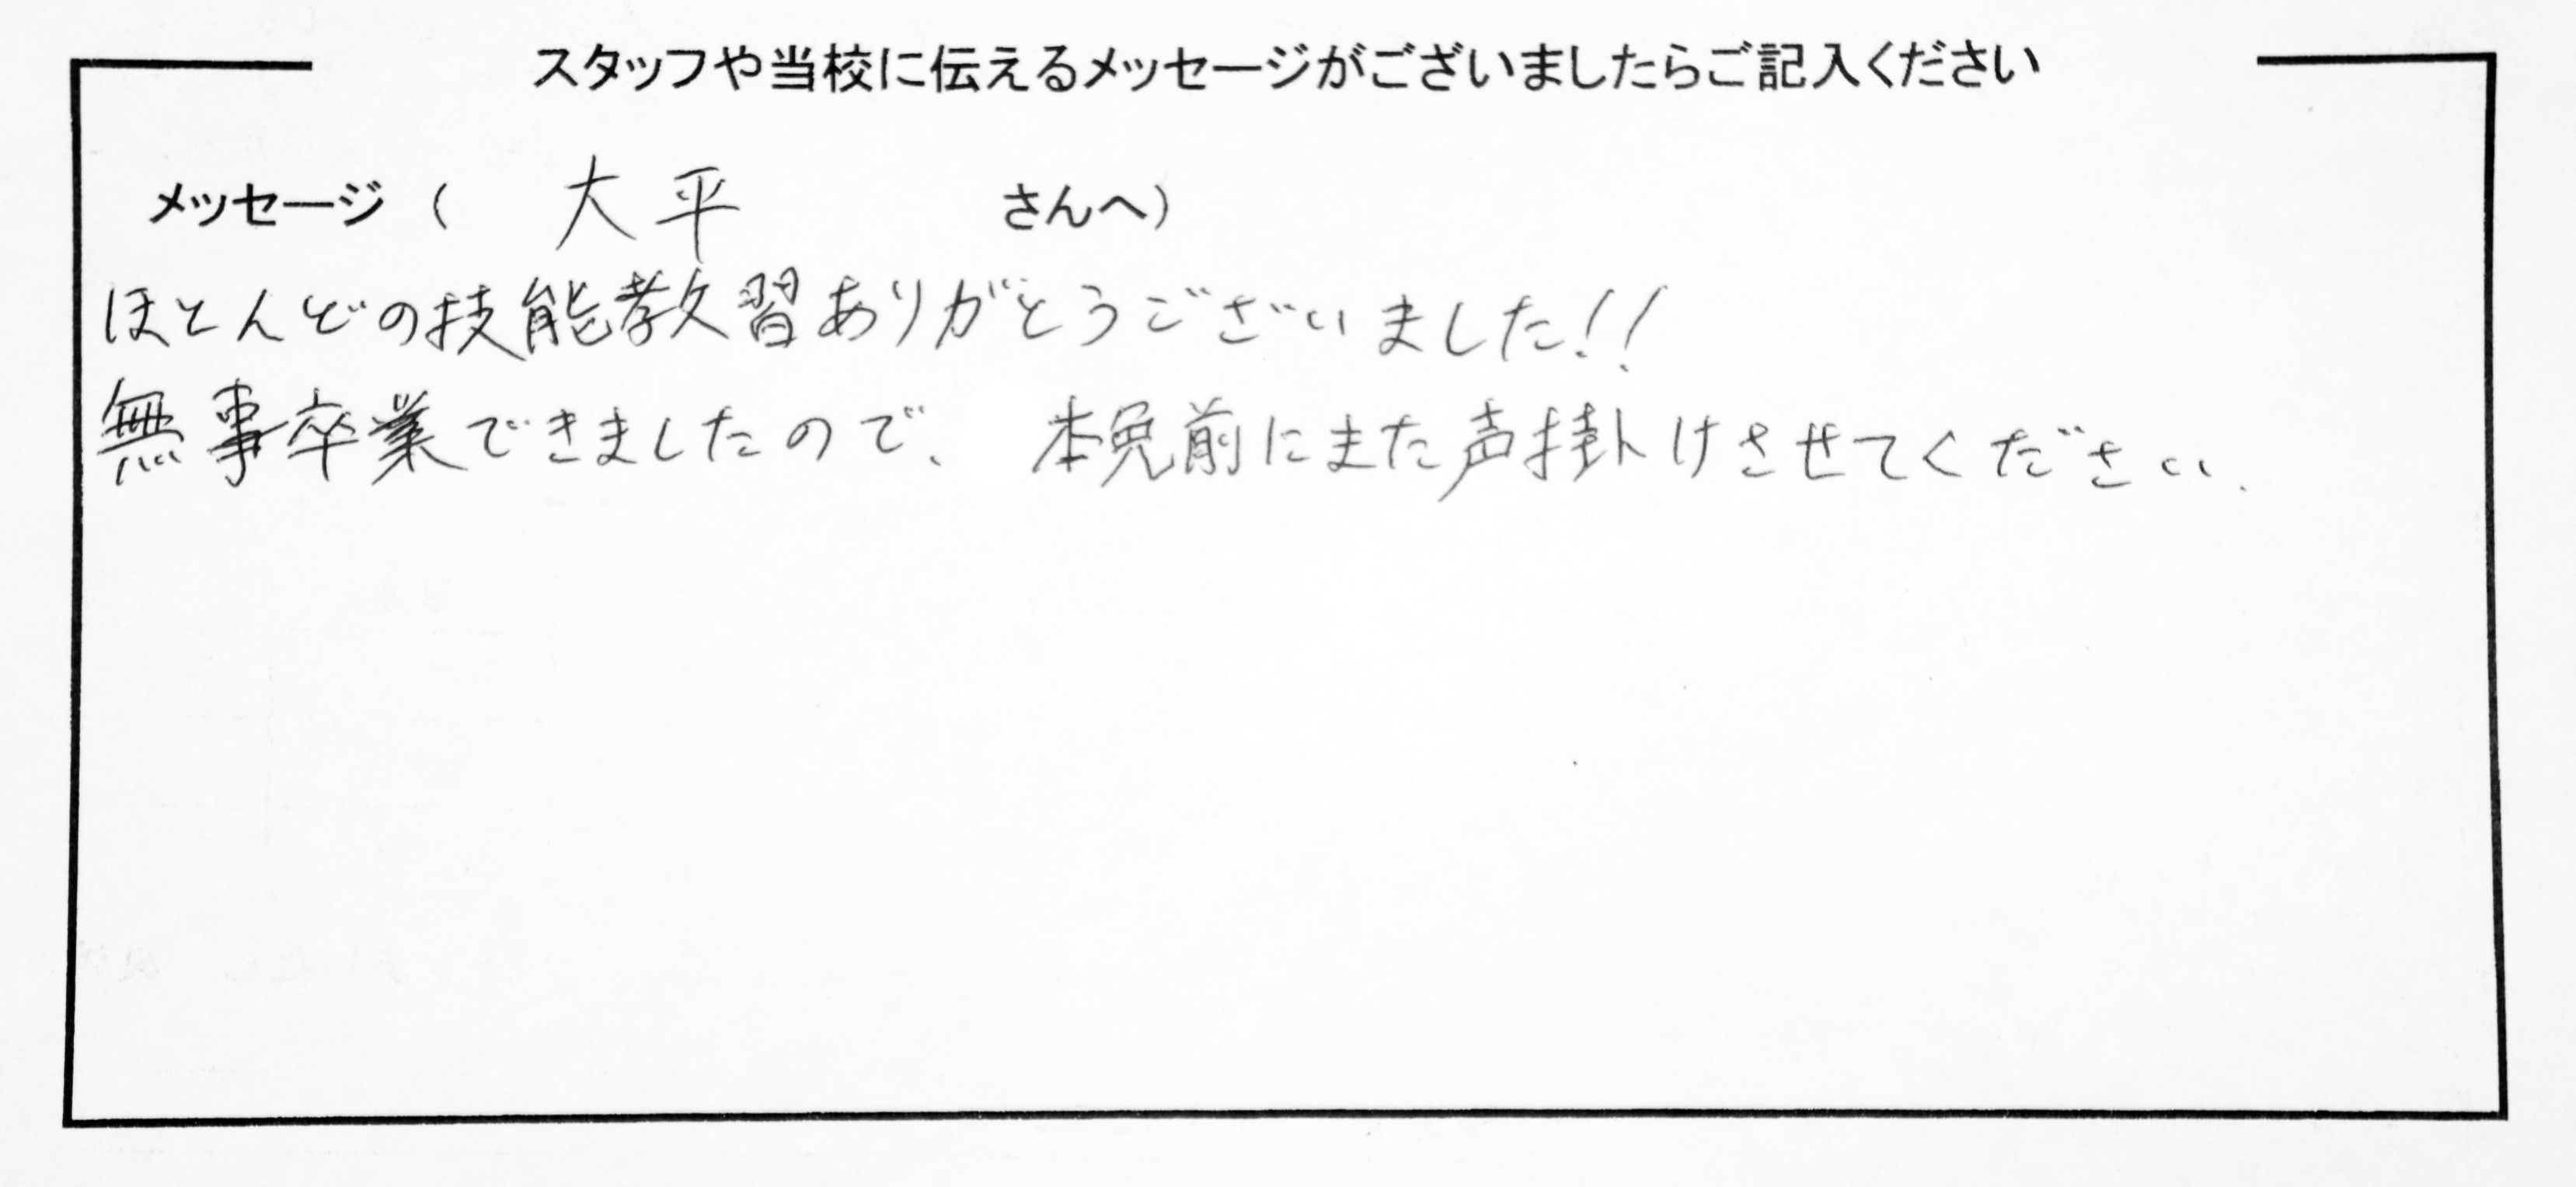 スタッフや当校に伝えるメッセージがございましたらご記入ください
メッセージ（ 大平 さんへ）
ほとんどの技能教習ありがとうございました!!
無事卒業できましたので、 本免前にまた声掛けさせてください.